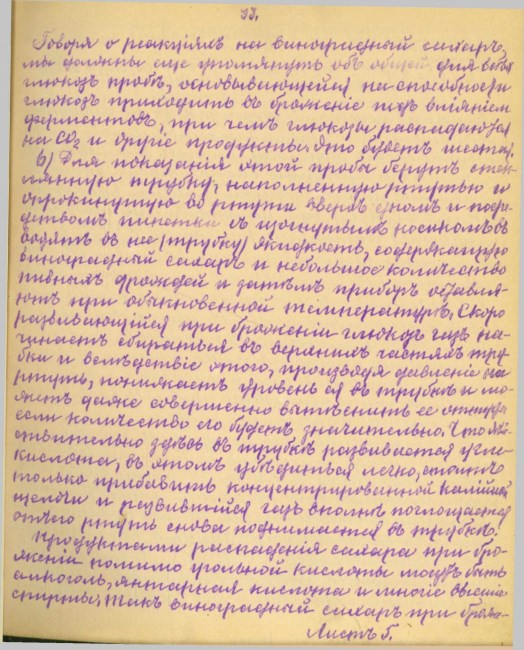 33.
Говоря о реакціяхъ на виноградный сахаръ,
мы должны еще упомянуть объ общей для всѣхъ
глюкозъ пробѣ, основывающейся на способности
глюкозъ приходить въ броженіе подъ вліяніемъ
ферментовъ, при чемъ глюкозы распадаются
на CO2 и другіе продукты. Это будетъ шестая.
6) Для показанія этой пробы берутъ стек-
лянную трубку, наполненную ртутью и
опрокинутую во ртути вверхъ дномъ и посре-
дствомъ пипетки съ изогнутымъ носикомъ вво-
водятъ въ нее (трубку) жидкость, содержащую
виноградный сахаръ и небольшое количество
пивныхъ дрожжей и затѣмъ приборъ оставля-
ютъ при обыкновенной температурѣ. Скоро
развивающійся при броженіи глюкозъ газъ на-
чинаетъ сбираться въ верхнихъ частяхъ тру-
бки и вслѣдствіе этого, производя давленіе на
ртуть, понижаетъ уровень ея въ трубкѣ и мо-
жетъ даже совершенно вытѣснить ее оттуда
если количество его будетъ значительно. Что дѣй-
ствительно здѣсь въ трубкѣ развивается угле-
кислота, въ этомъ убѣдиться легко, стоитъ
только прибавить концентрированной калійной
щелочи и развившійся газъ вполнѣ поглощается
отчего ртуть снова поднимается въ трубкѣ.
Продуктами распаденія сахара при бро-
женіи помимо угольной кислоты могутъ быть
алкоголь, янтарная кислота и многіе высшіе
спирты. Такъ виноградный сахаръ при броже-
Листъ 5.